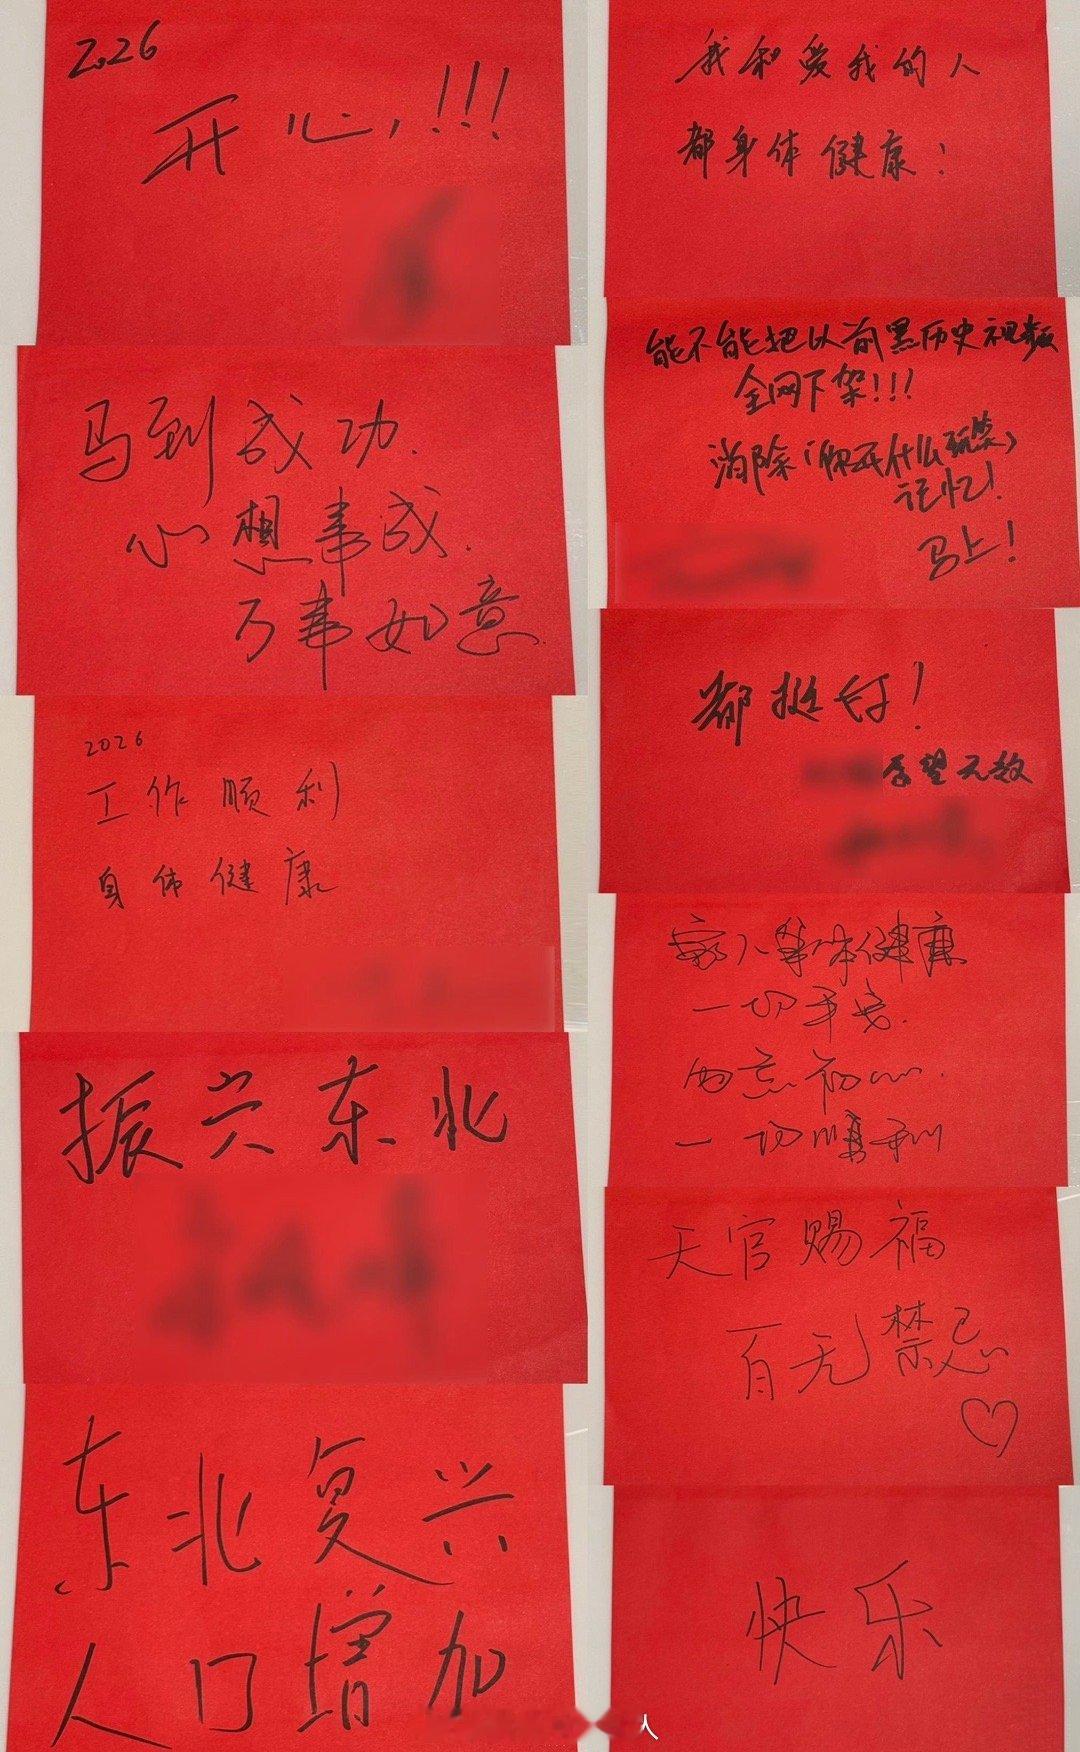 2026
开心!!!
马到成功.
心想事成.
万事如意.
2026
工作顺利
身体健康
振兴东北
东北复兴
人口增加
我和爱我的人
都身体健康!
能不能把以前黑历史视频
全网下架!!!
消除(你开什么玩笑)
记忆!
马上!
都挺好!
希望无敌
家人身体健康
一切平安.
勿忘初心.
一切顺利
天官赐福
百无禁忌
快乐
人